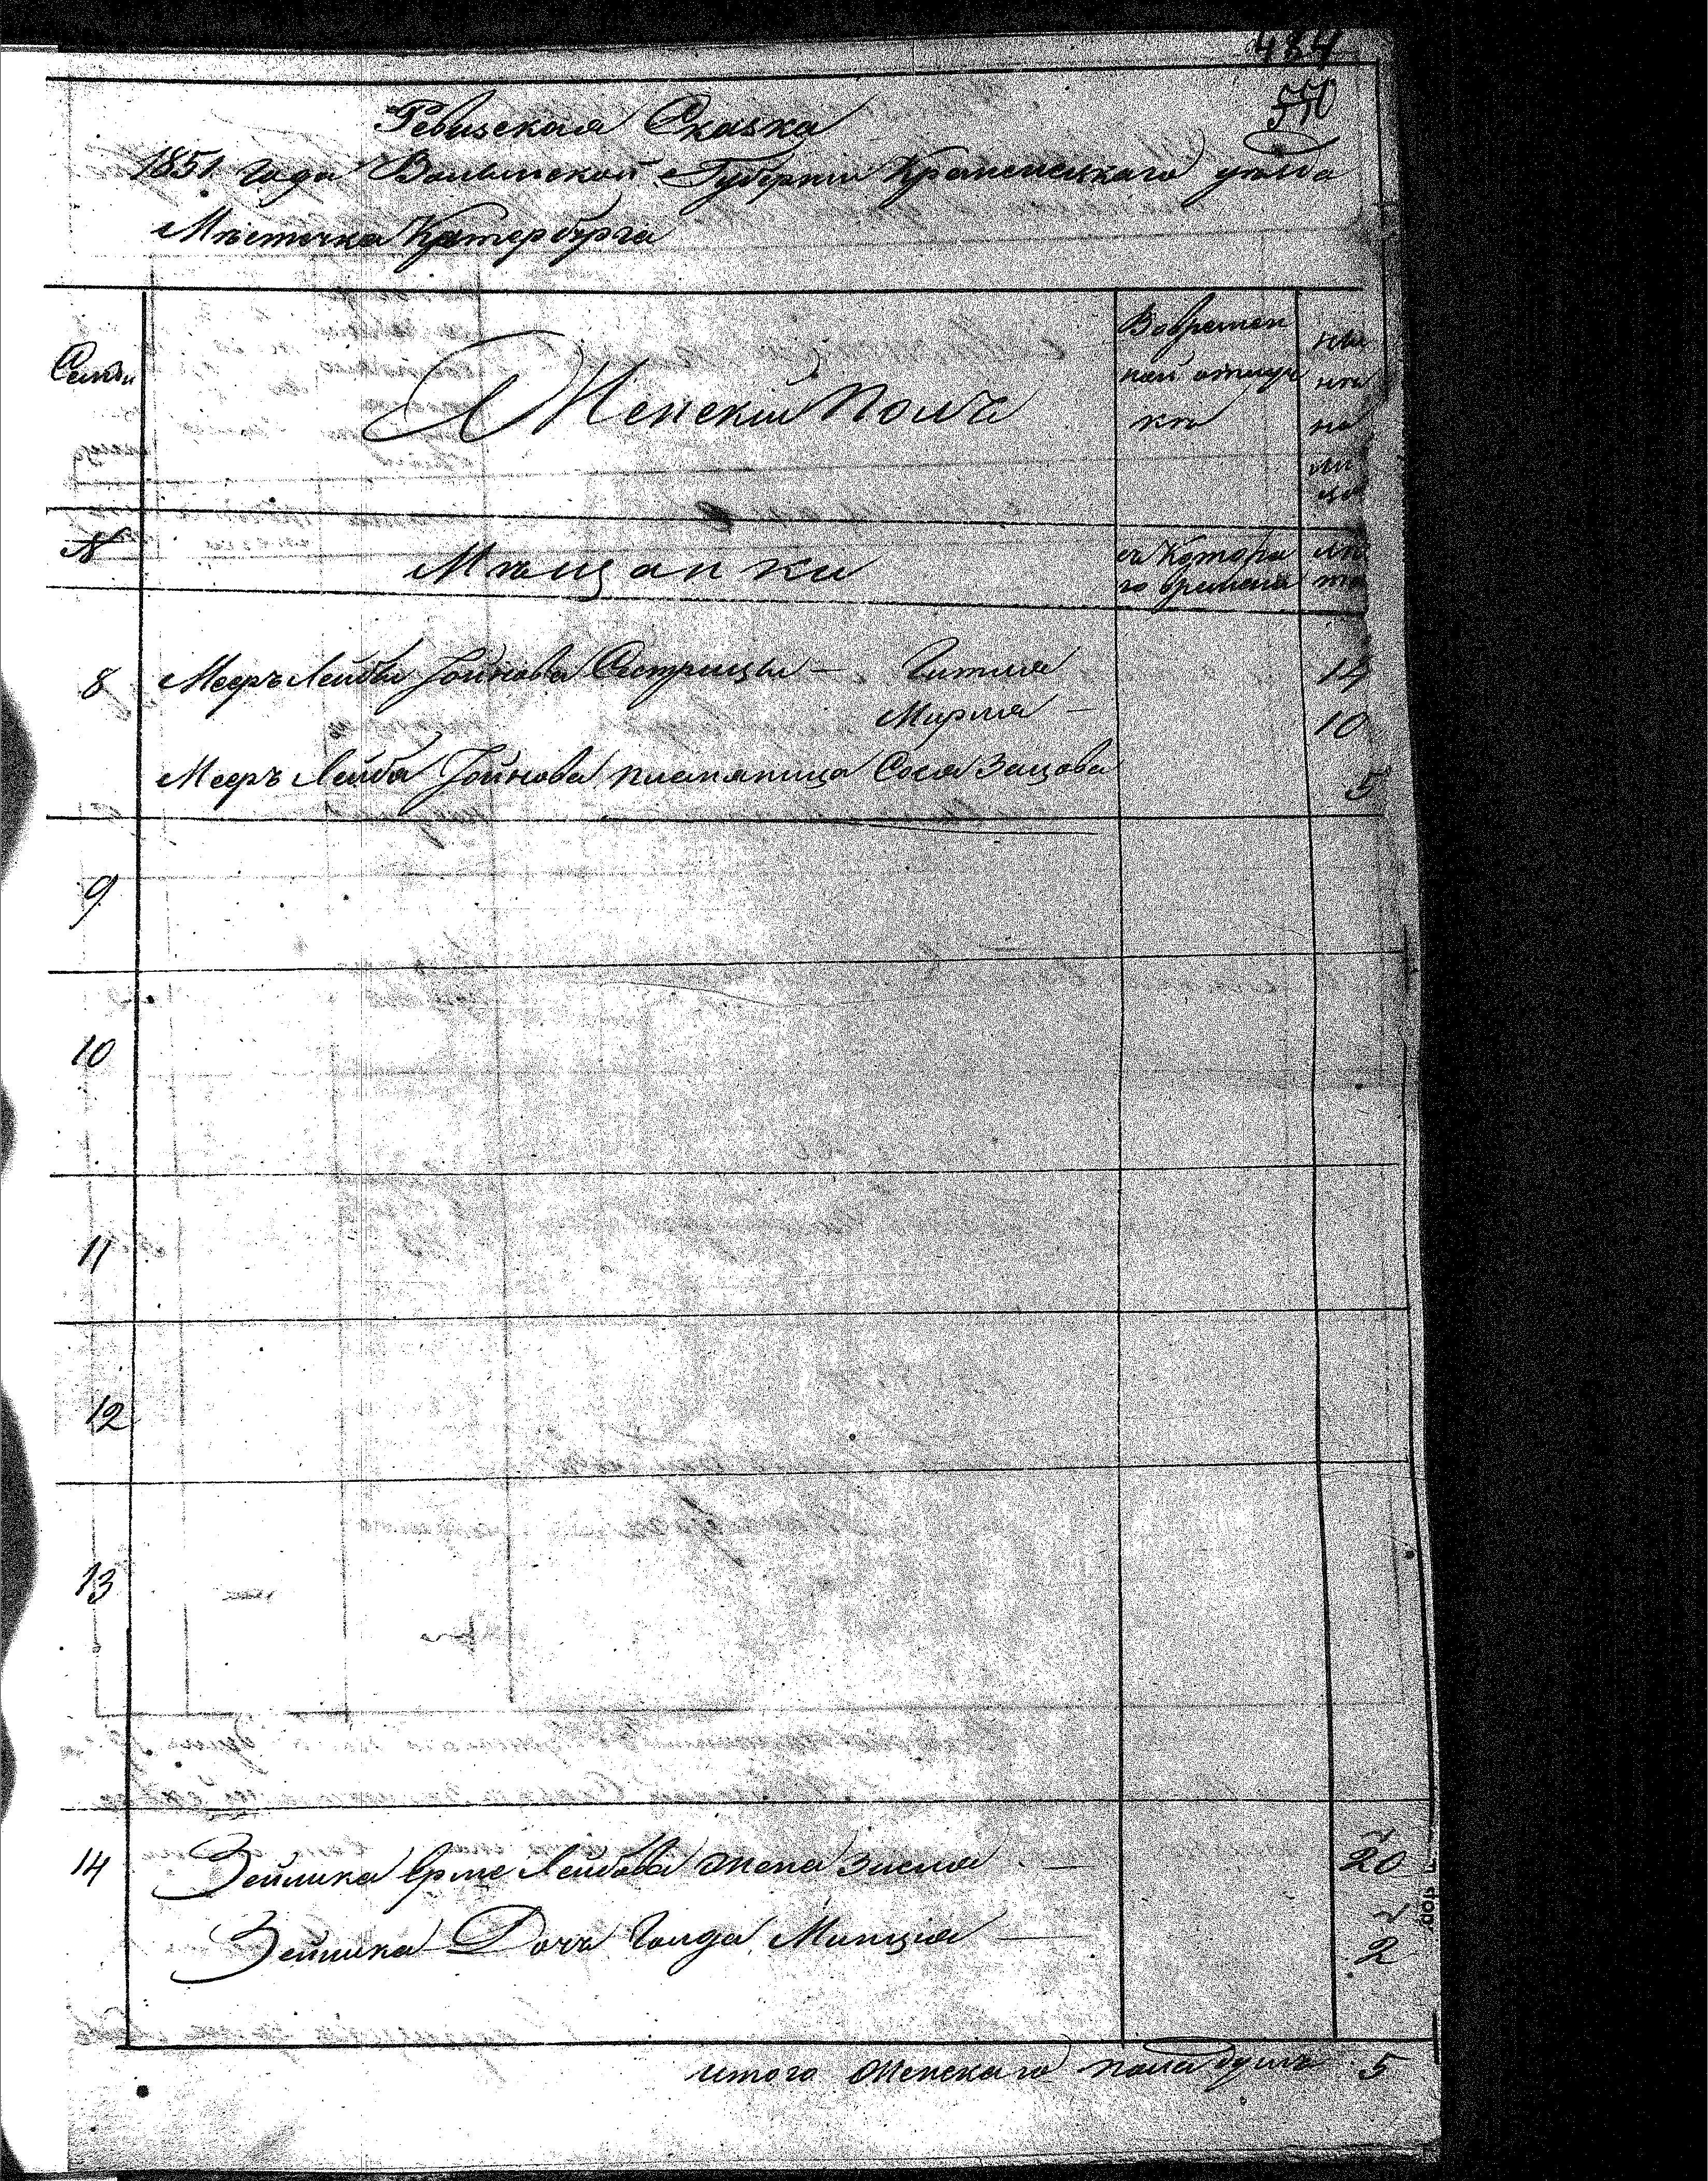 484
550
Ревизская Сказка
1851 года Волынской Губерніи Кременецкаго уѣзда
Мѣстечка Катербурга
Семьи
Женскій полъ
Вовремен
ной отлуч
кѣ
ны
нѣ
на
ли
цо
№
Мѣщанки
съ Котора
го времени
лѣ
та
8 Мееръ Лейбы Іойнова Сестрицы — Гитля 14
Мирля — 10
Мееръ Лейба Іойнова племяница Сося Зацова 5
9
10
11
12
13
14 Зейлика Ерме Лейбова жена Зисля — 20
Зейлика Дочь Голда Минция — 2
итого женскаго пола душъ 5